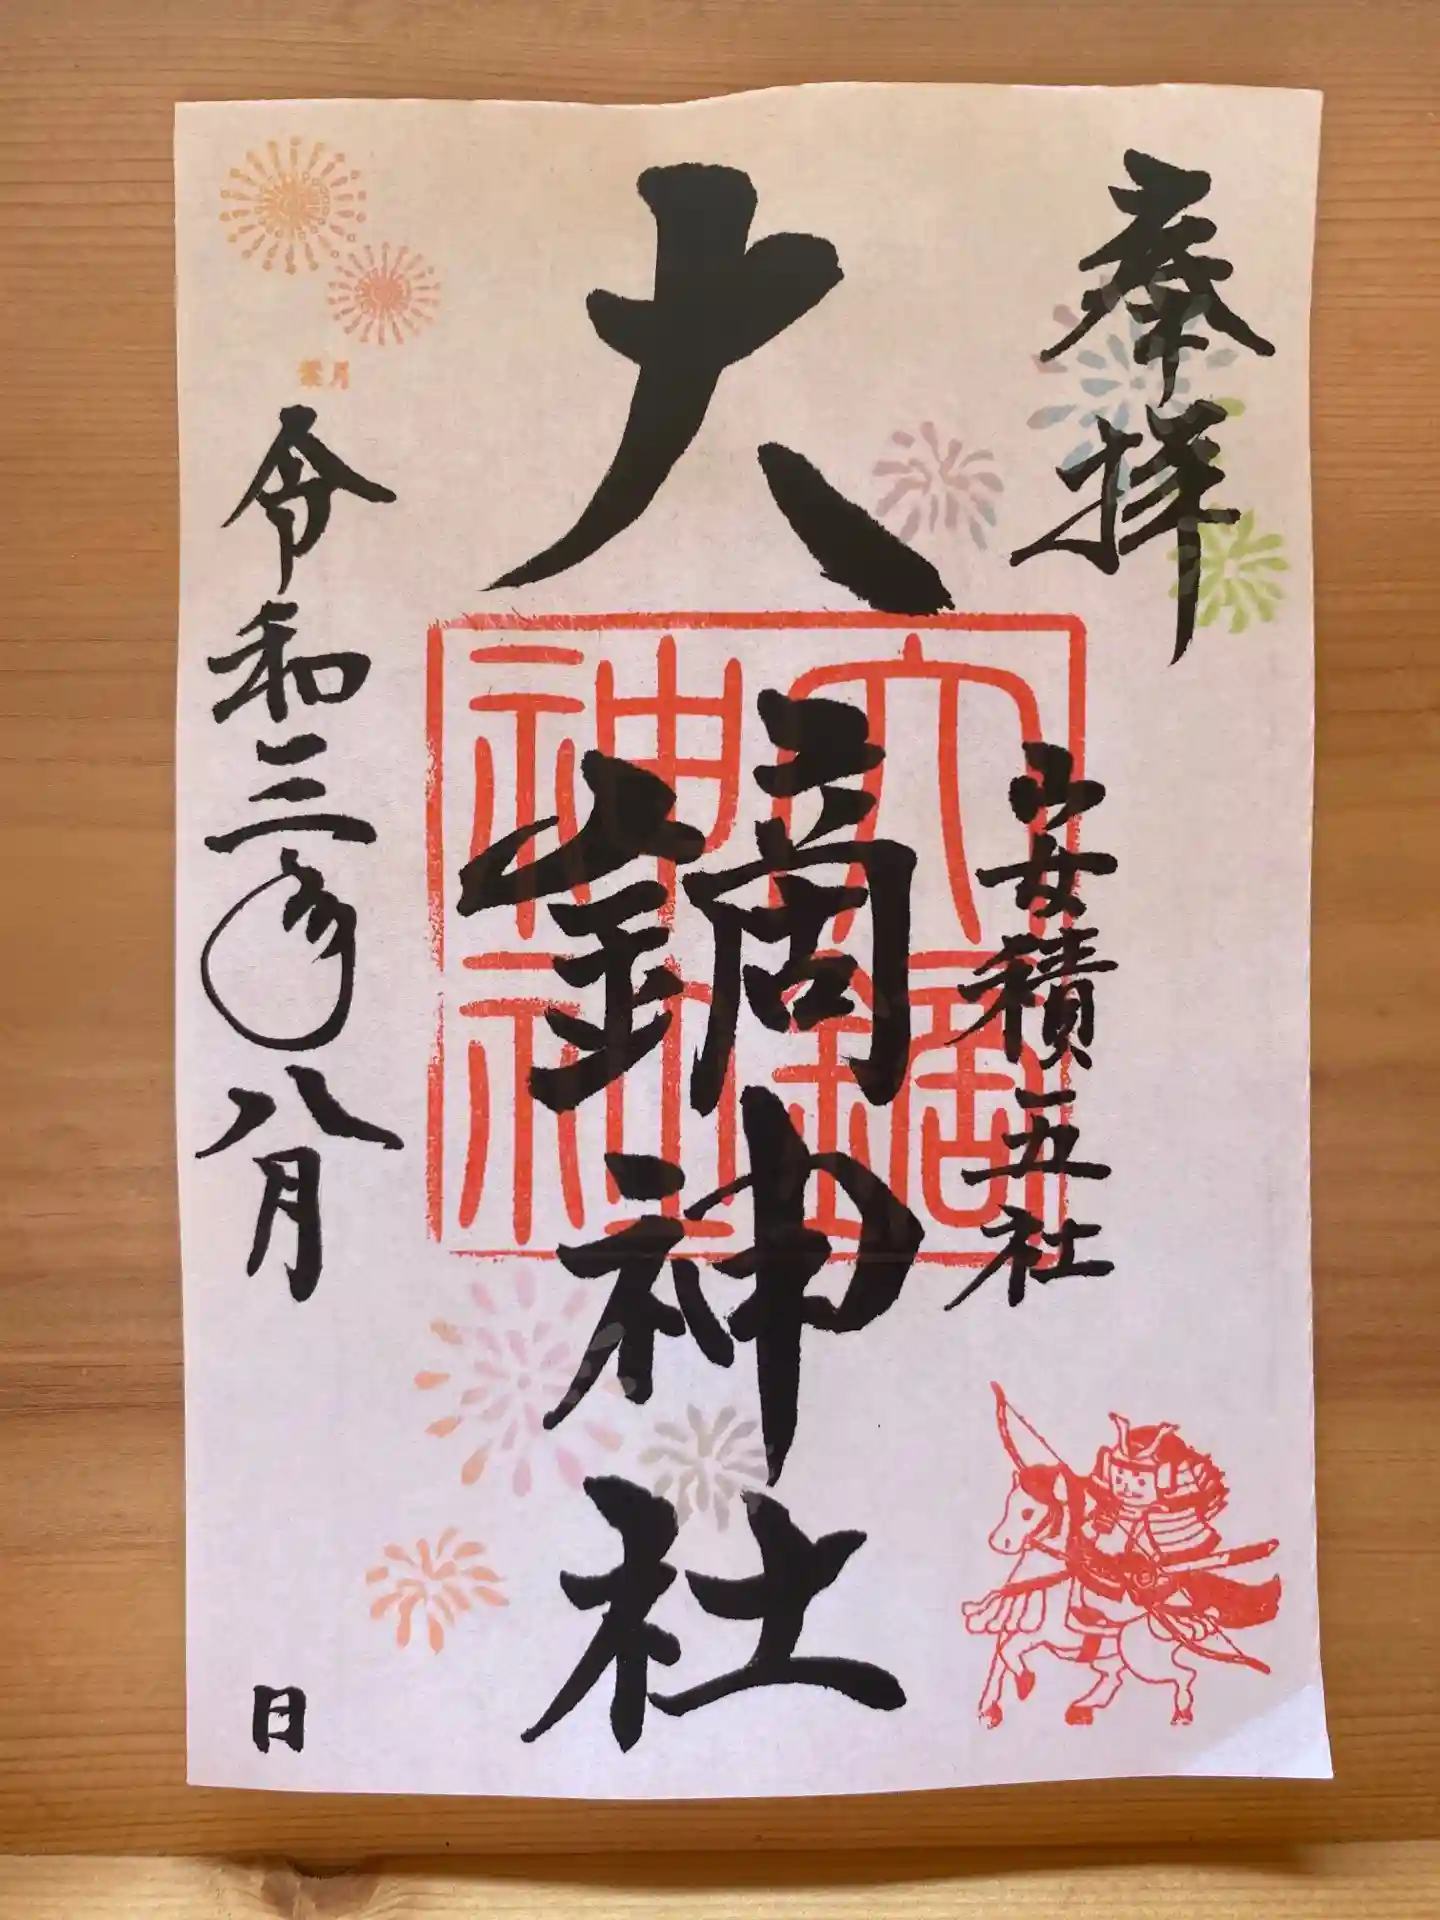 奉拝
安積三五社
大鏑神社
大鏑神社
葉月
令和三年八月
日